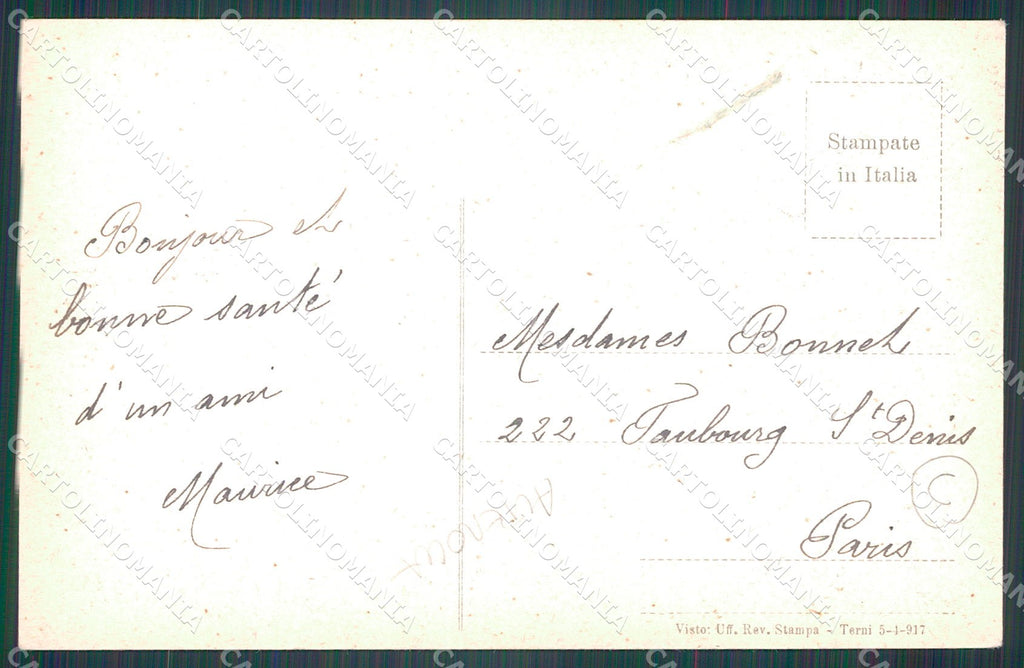 Stampate
in Italia
Bonjour et
bonne santé
d'un ami
Maurice
Mesdames Bonnet
222 Faubourg St Denis
Paris
C
Visto: Uff. Rev. Stampa - Terni 5-1-917
CARTOLINOMANIA